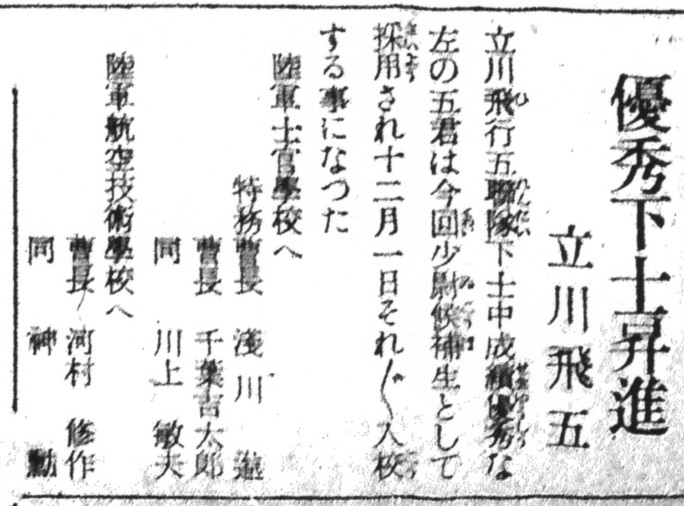 優秀下士昇進
立川飛五
立川飛行五聯隊下士中成績優秀な
左の五君は今回少尉候補生として
採用され十二月一日それ〴〵入校
する事になつた
陸軍士官學校へ
特務曹長 淺川 進
曹長 千葉吉太郎
同 川上 敏夫
陸軍航空技術學校へ
曹長 河村 修作
同 神 勳